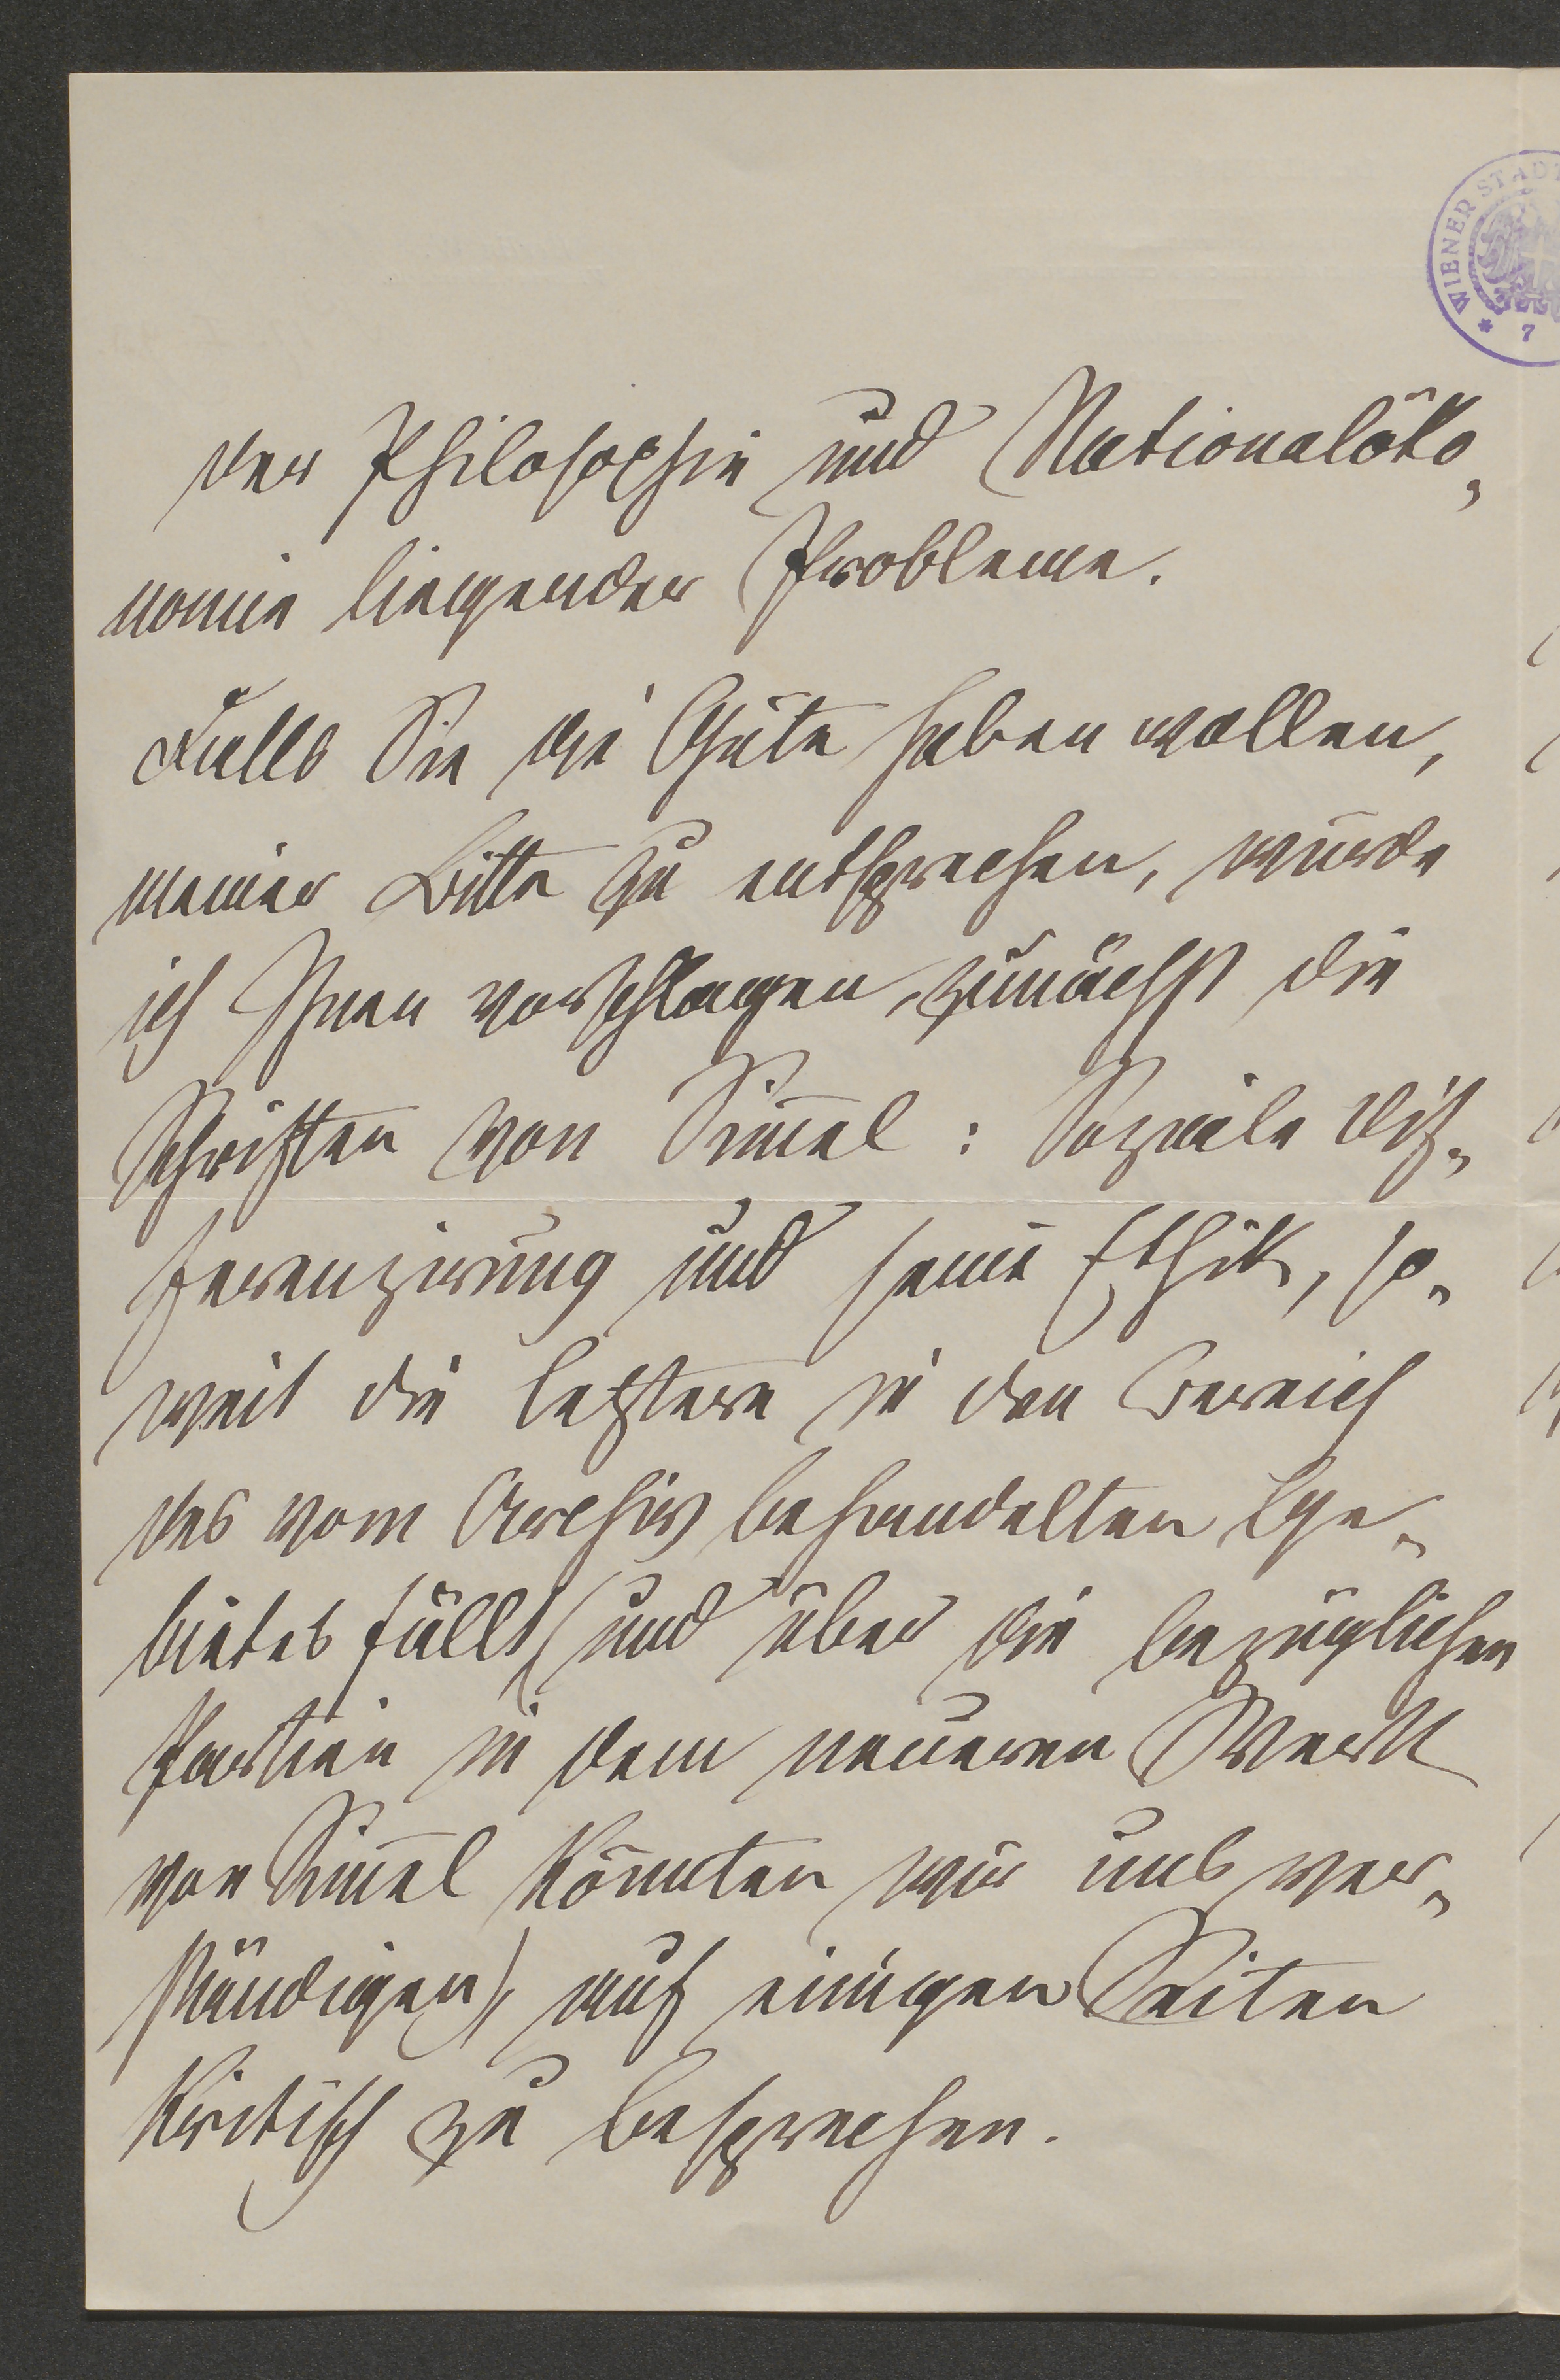 WIENER STADT
* 7
der Philosophie und Nationalöko-
nomie liegender Probleme.
Falls Sie die Güte haben wollen,
meiner Bitte zu entsprechen, würde
ich Ihnen vorschlagen, zunächst die
Schriften von Sim̅el: Soziale Dif-
ferenzirung und seine Ethik, so-
weit die letztere in den Bereich
des vom Archiv behandelten Ge-
bietes fällt (und über die bezüglichen
Partien in dem neueren Werk
von Sim̅el könnten wir uns ver-
ständigen), auf einigen Seiten
kritisch zu besprechen.